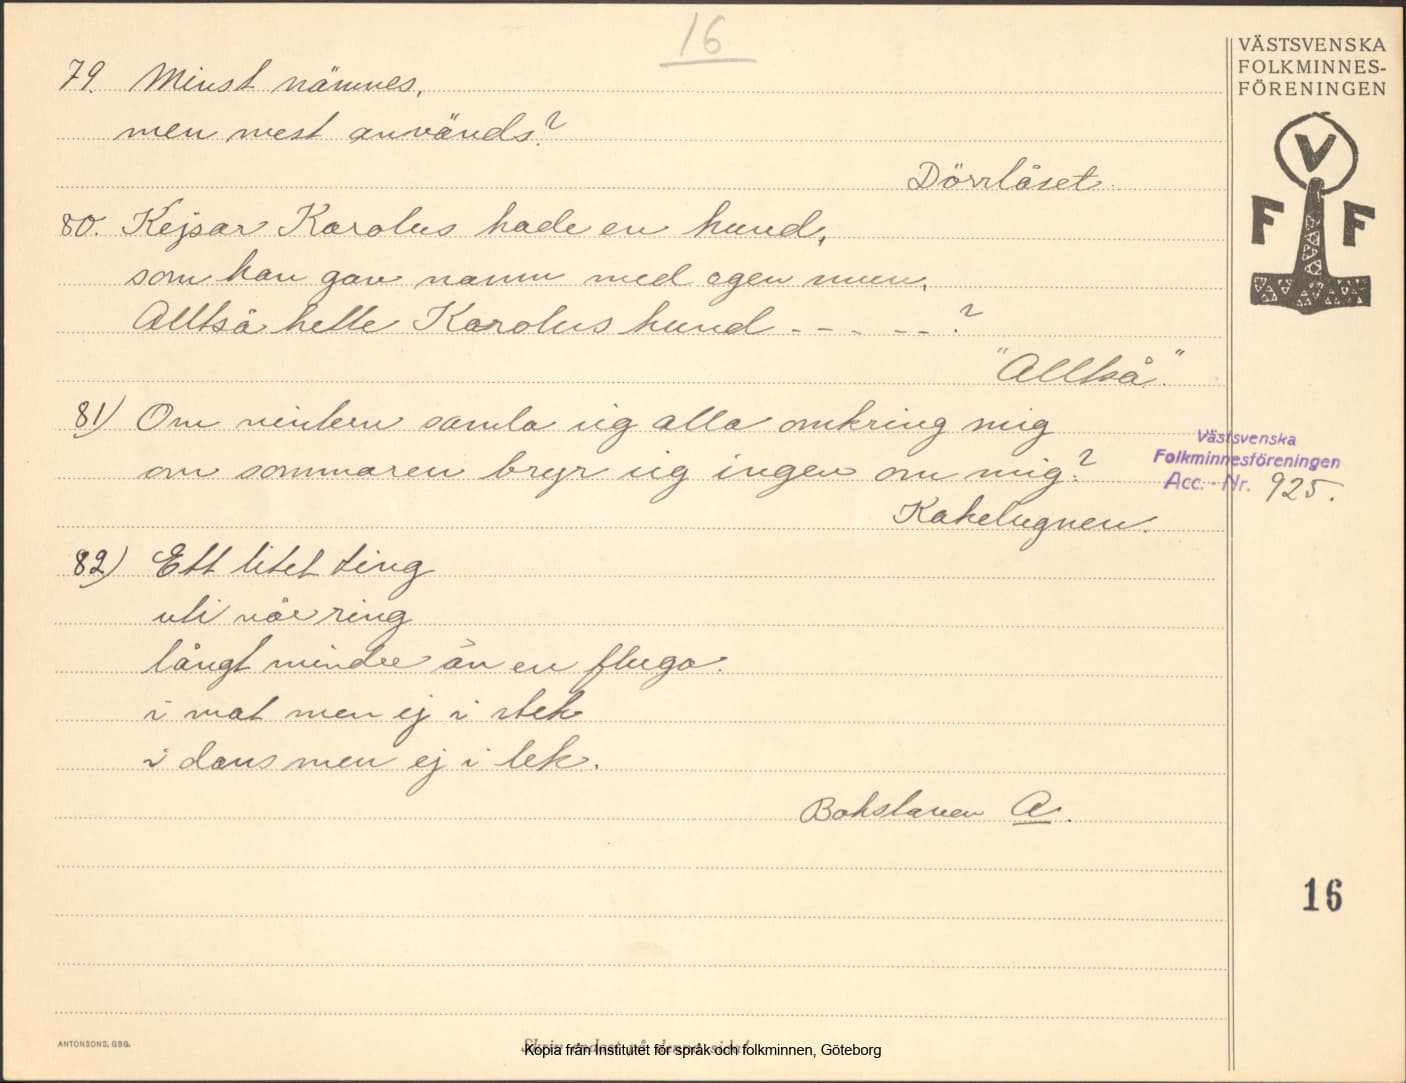 16
79. Minst nämnes,
men mest används?
Dörrlåset.
80. Kejsar Karolus hade en hund,
som han gav namn med egen mun.
Alltså hette Karolus hund - - - - - ?
"Alltså."
81) Om vintern samla sig alla omkring mig
om sommaren bryr sig ingen om mig?
Kakelugnen.
82) Ett litet ting
uti vår ring
långt mindre än en fluga.
i mat men ej i stek
i dans men ej i lek.
Bokstaven A.
VÄSTSVENSKA
FOLKMINNES-
FÖRENINGEN
V
F F
Västsvenska
Folkminnesföreningen
Acc. - Nr. 925.
16
ANTONSONS, GBG.
Skriv endast på denna sida!
Kopia från Institutet för språk och folkminnen, Göteborg